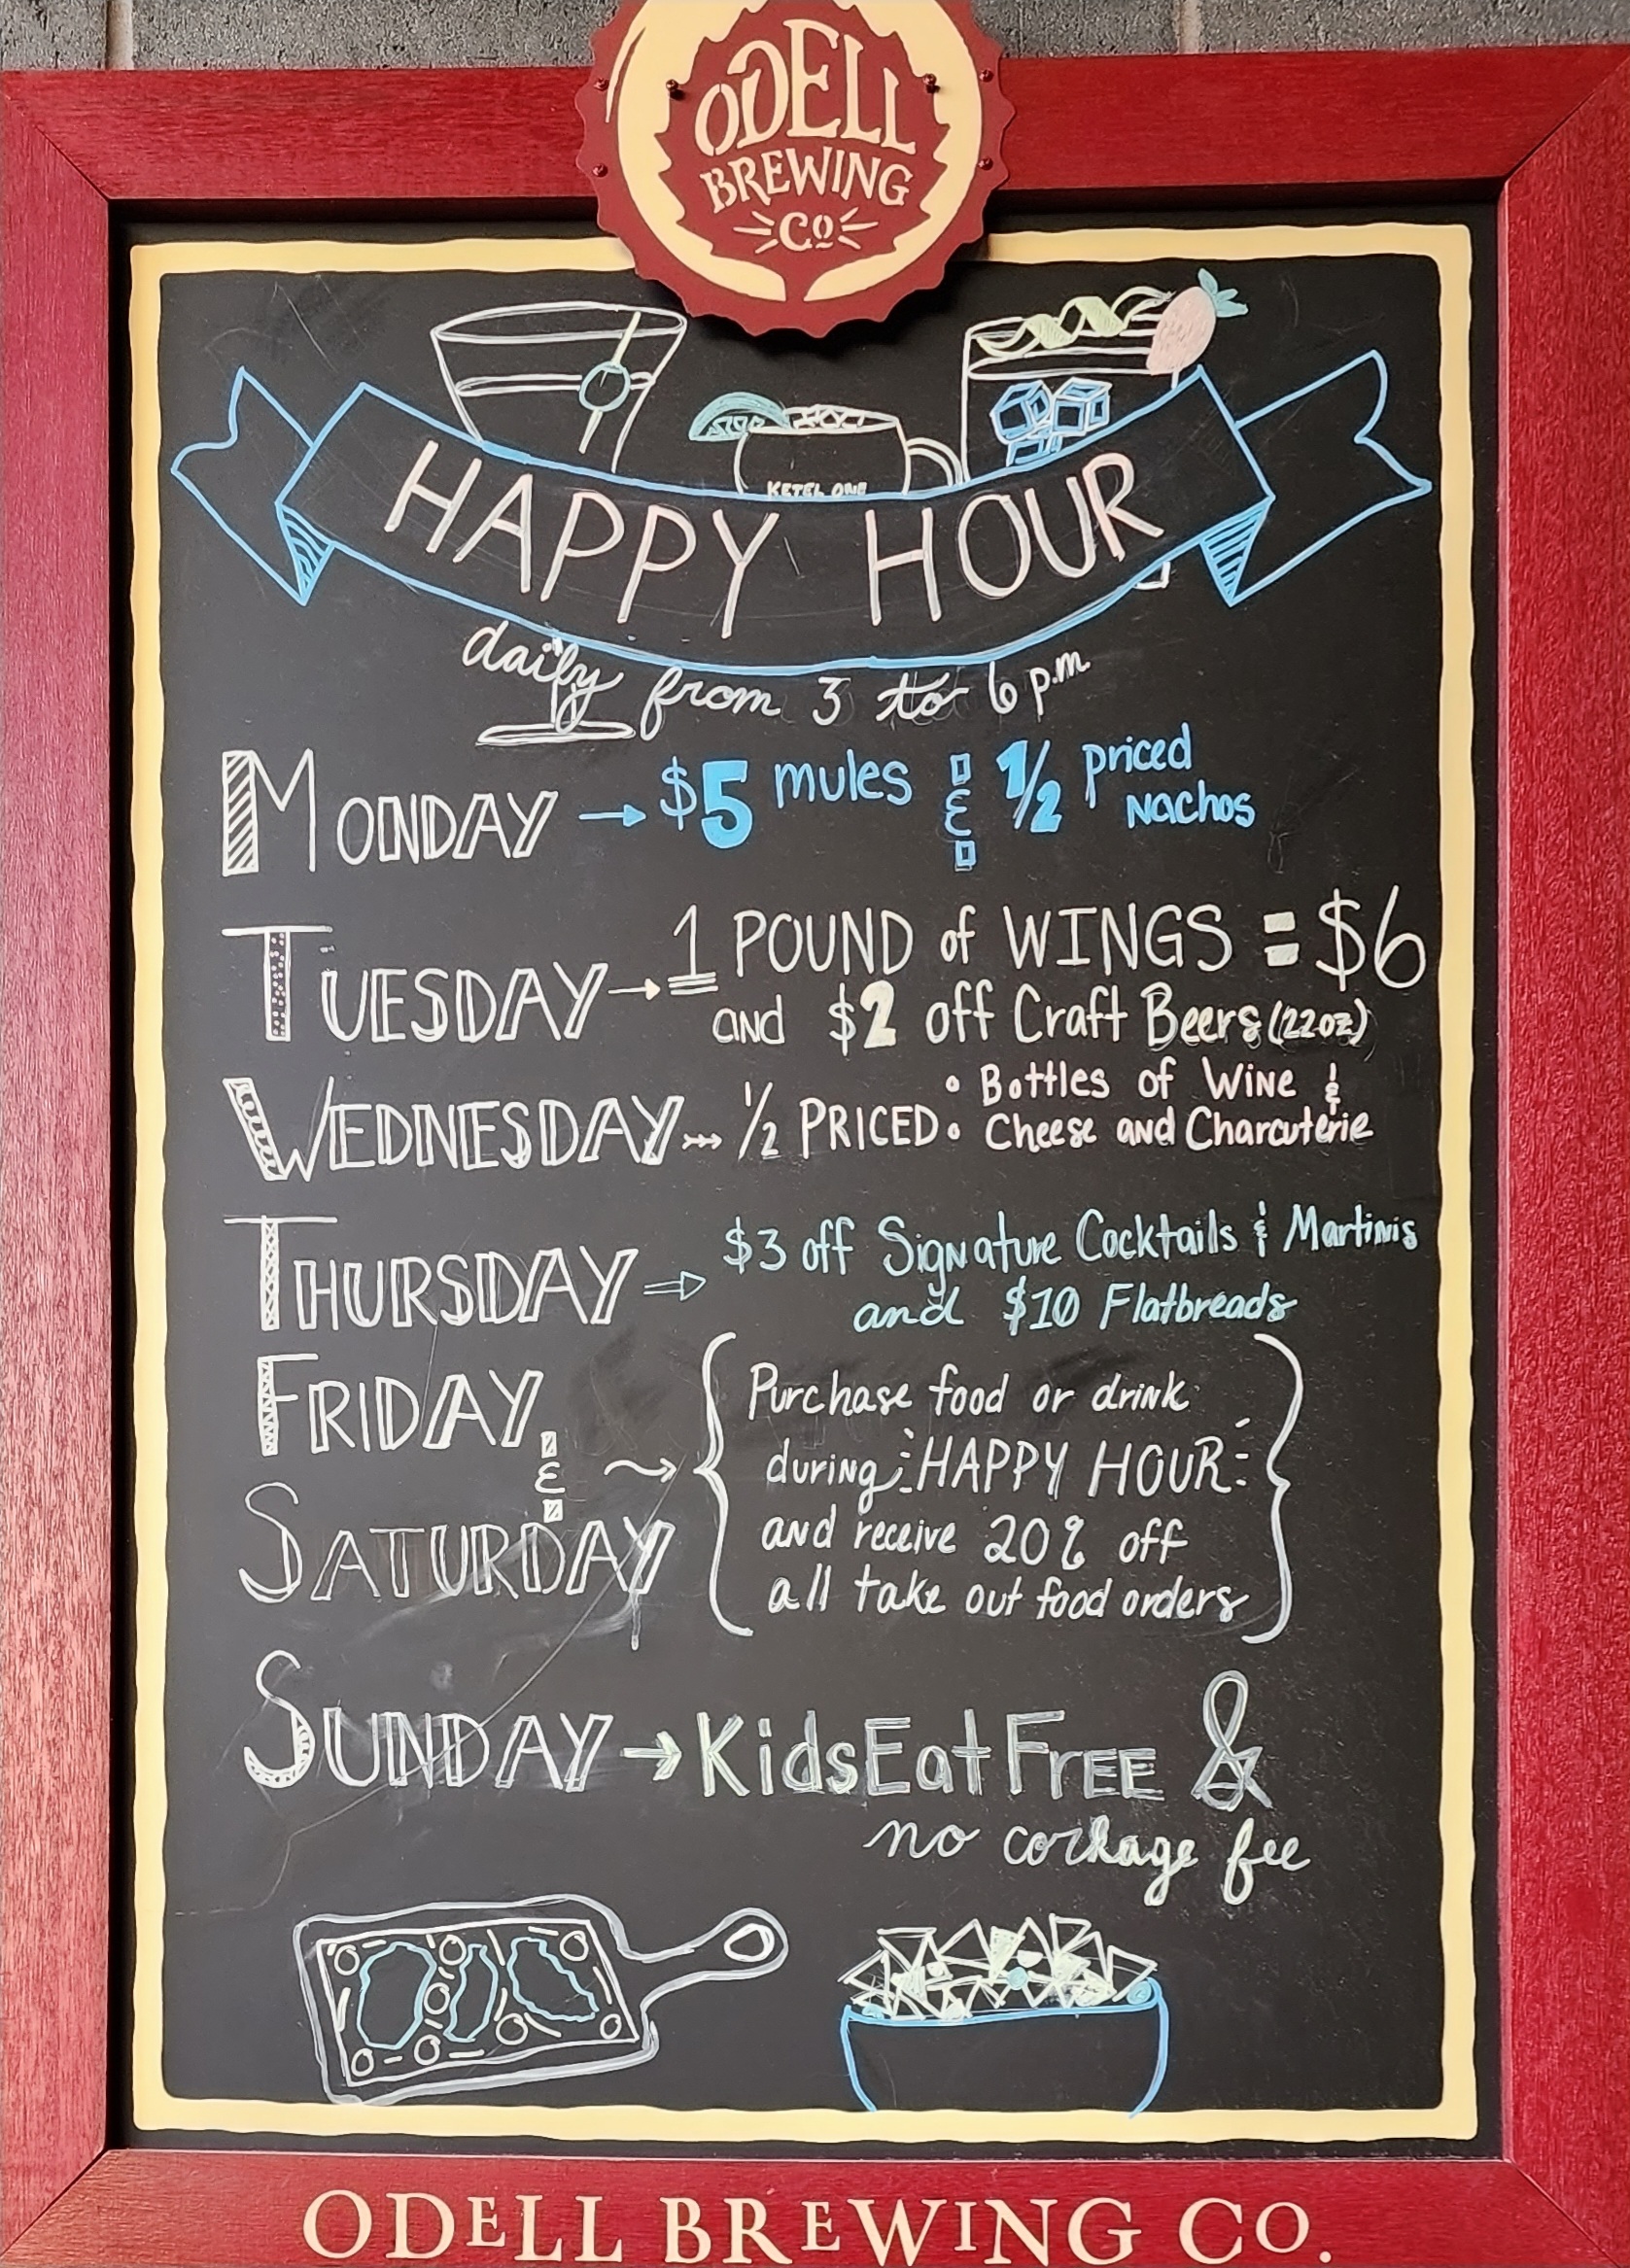 ODELL
BREWING
CO
KETEL ONE
HAPPY HOUR
daily from 3 to 6 p.m
MONDAY → $5 mules & 1/2 priced
Nachos
TUESDAY → 1 POUND of WINGS = $6
and $2 off Craft Beers (22oz)
• Bottles of Wine &
WEDNESDAY 1/2 PRICED • Cheese and Charcuterie
$3 off Signature Cocktails & Martinis
THURSDAY ⇒ and $10 Flatbreads
FRIDAY
&
SATURDAY
Purchase food or drink
during HAPPY HOUR
and receive 20% off
all take out food orders
SUNDAY → Kids Eat FREE &
no corkage fee
ODELL BREWING CO.